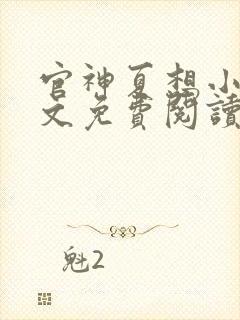 官神夏想小
文免費閱讀
魁2